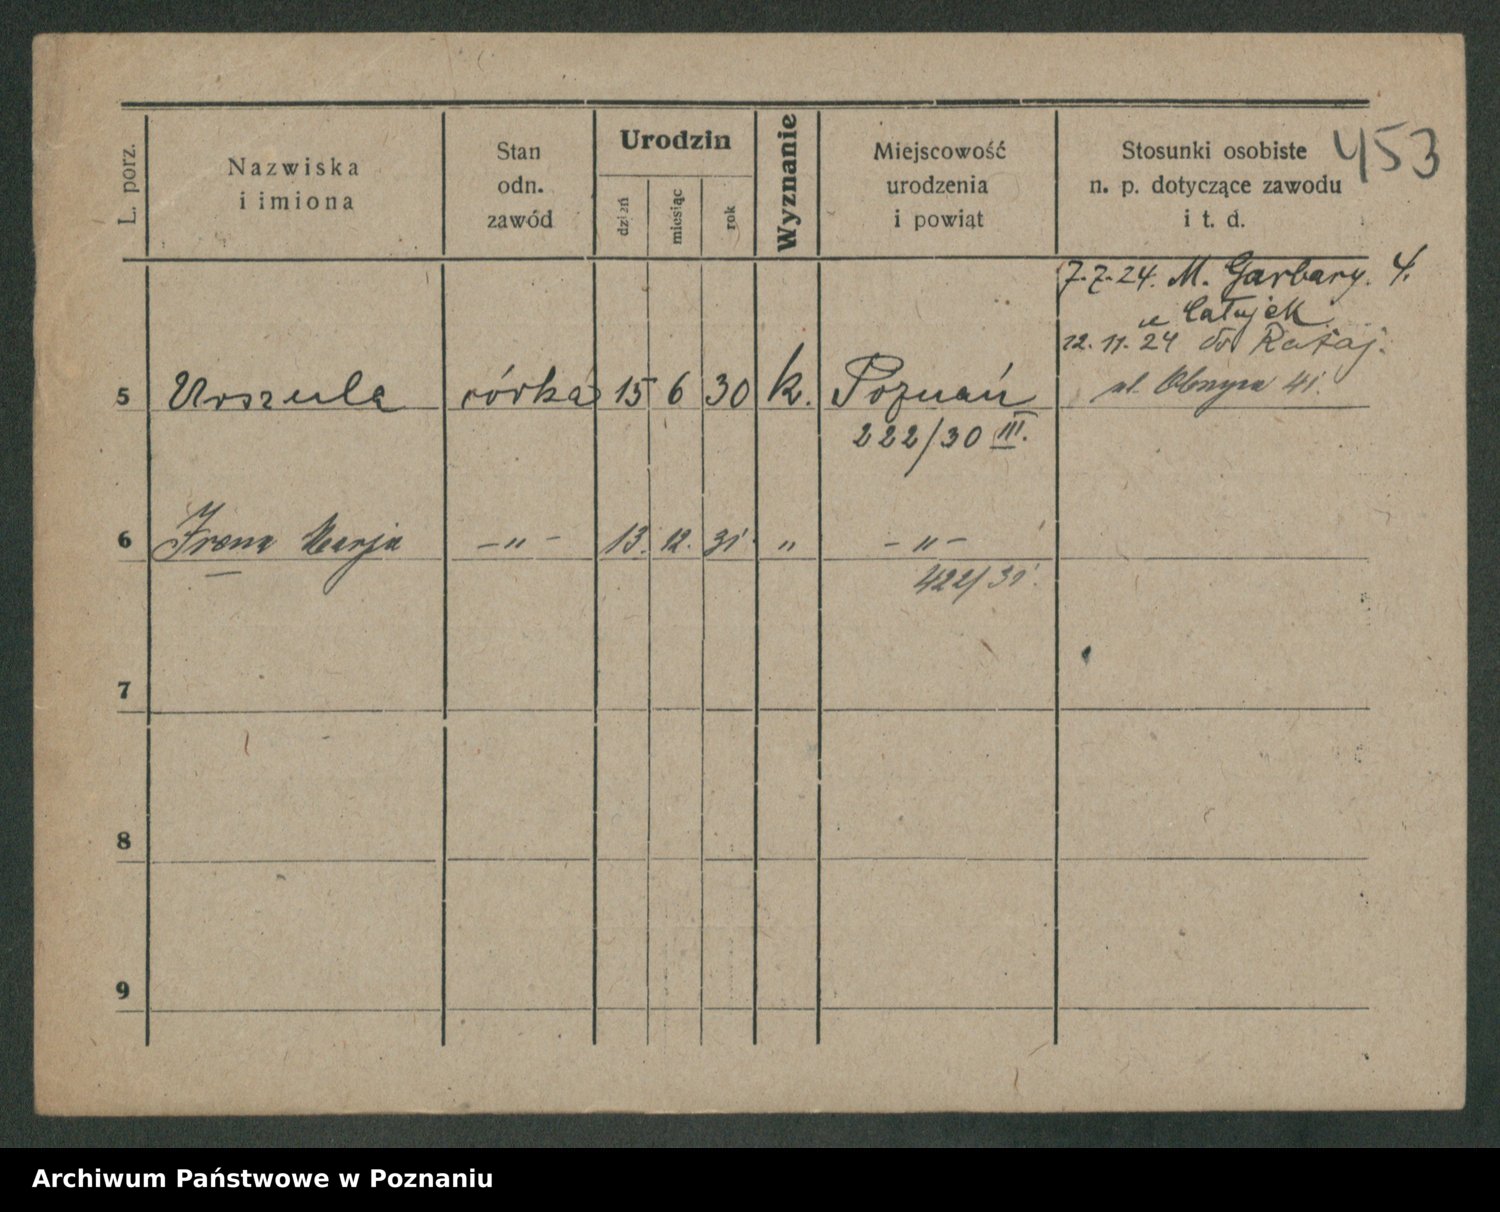 453
L. porz.
Nazwiska
i imiona
Stan
odn.
zawód
Urodzin
dzień
miesiąc
rok
Wyznanie
Miejscowość
urodzenia
i powiąt
Stosunki osobiste
n. p. dotyczące zawodu
i t. d.
7.7.24. M. Garbary. 4.
u
12.11.24 do Rataj.
ul. 41.
5 Urszula córka 15 6 30 k. Poznań
222/30 III.
6 Irena Marja – " – 13. 12. 31 " – " –
422/31.
7
8
9
Archiwum Państwowe w Poznaniu